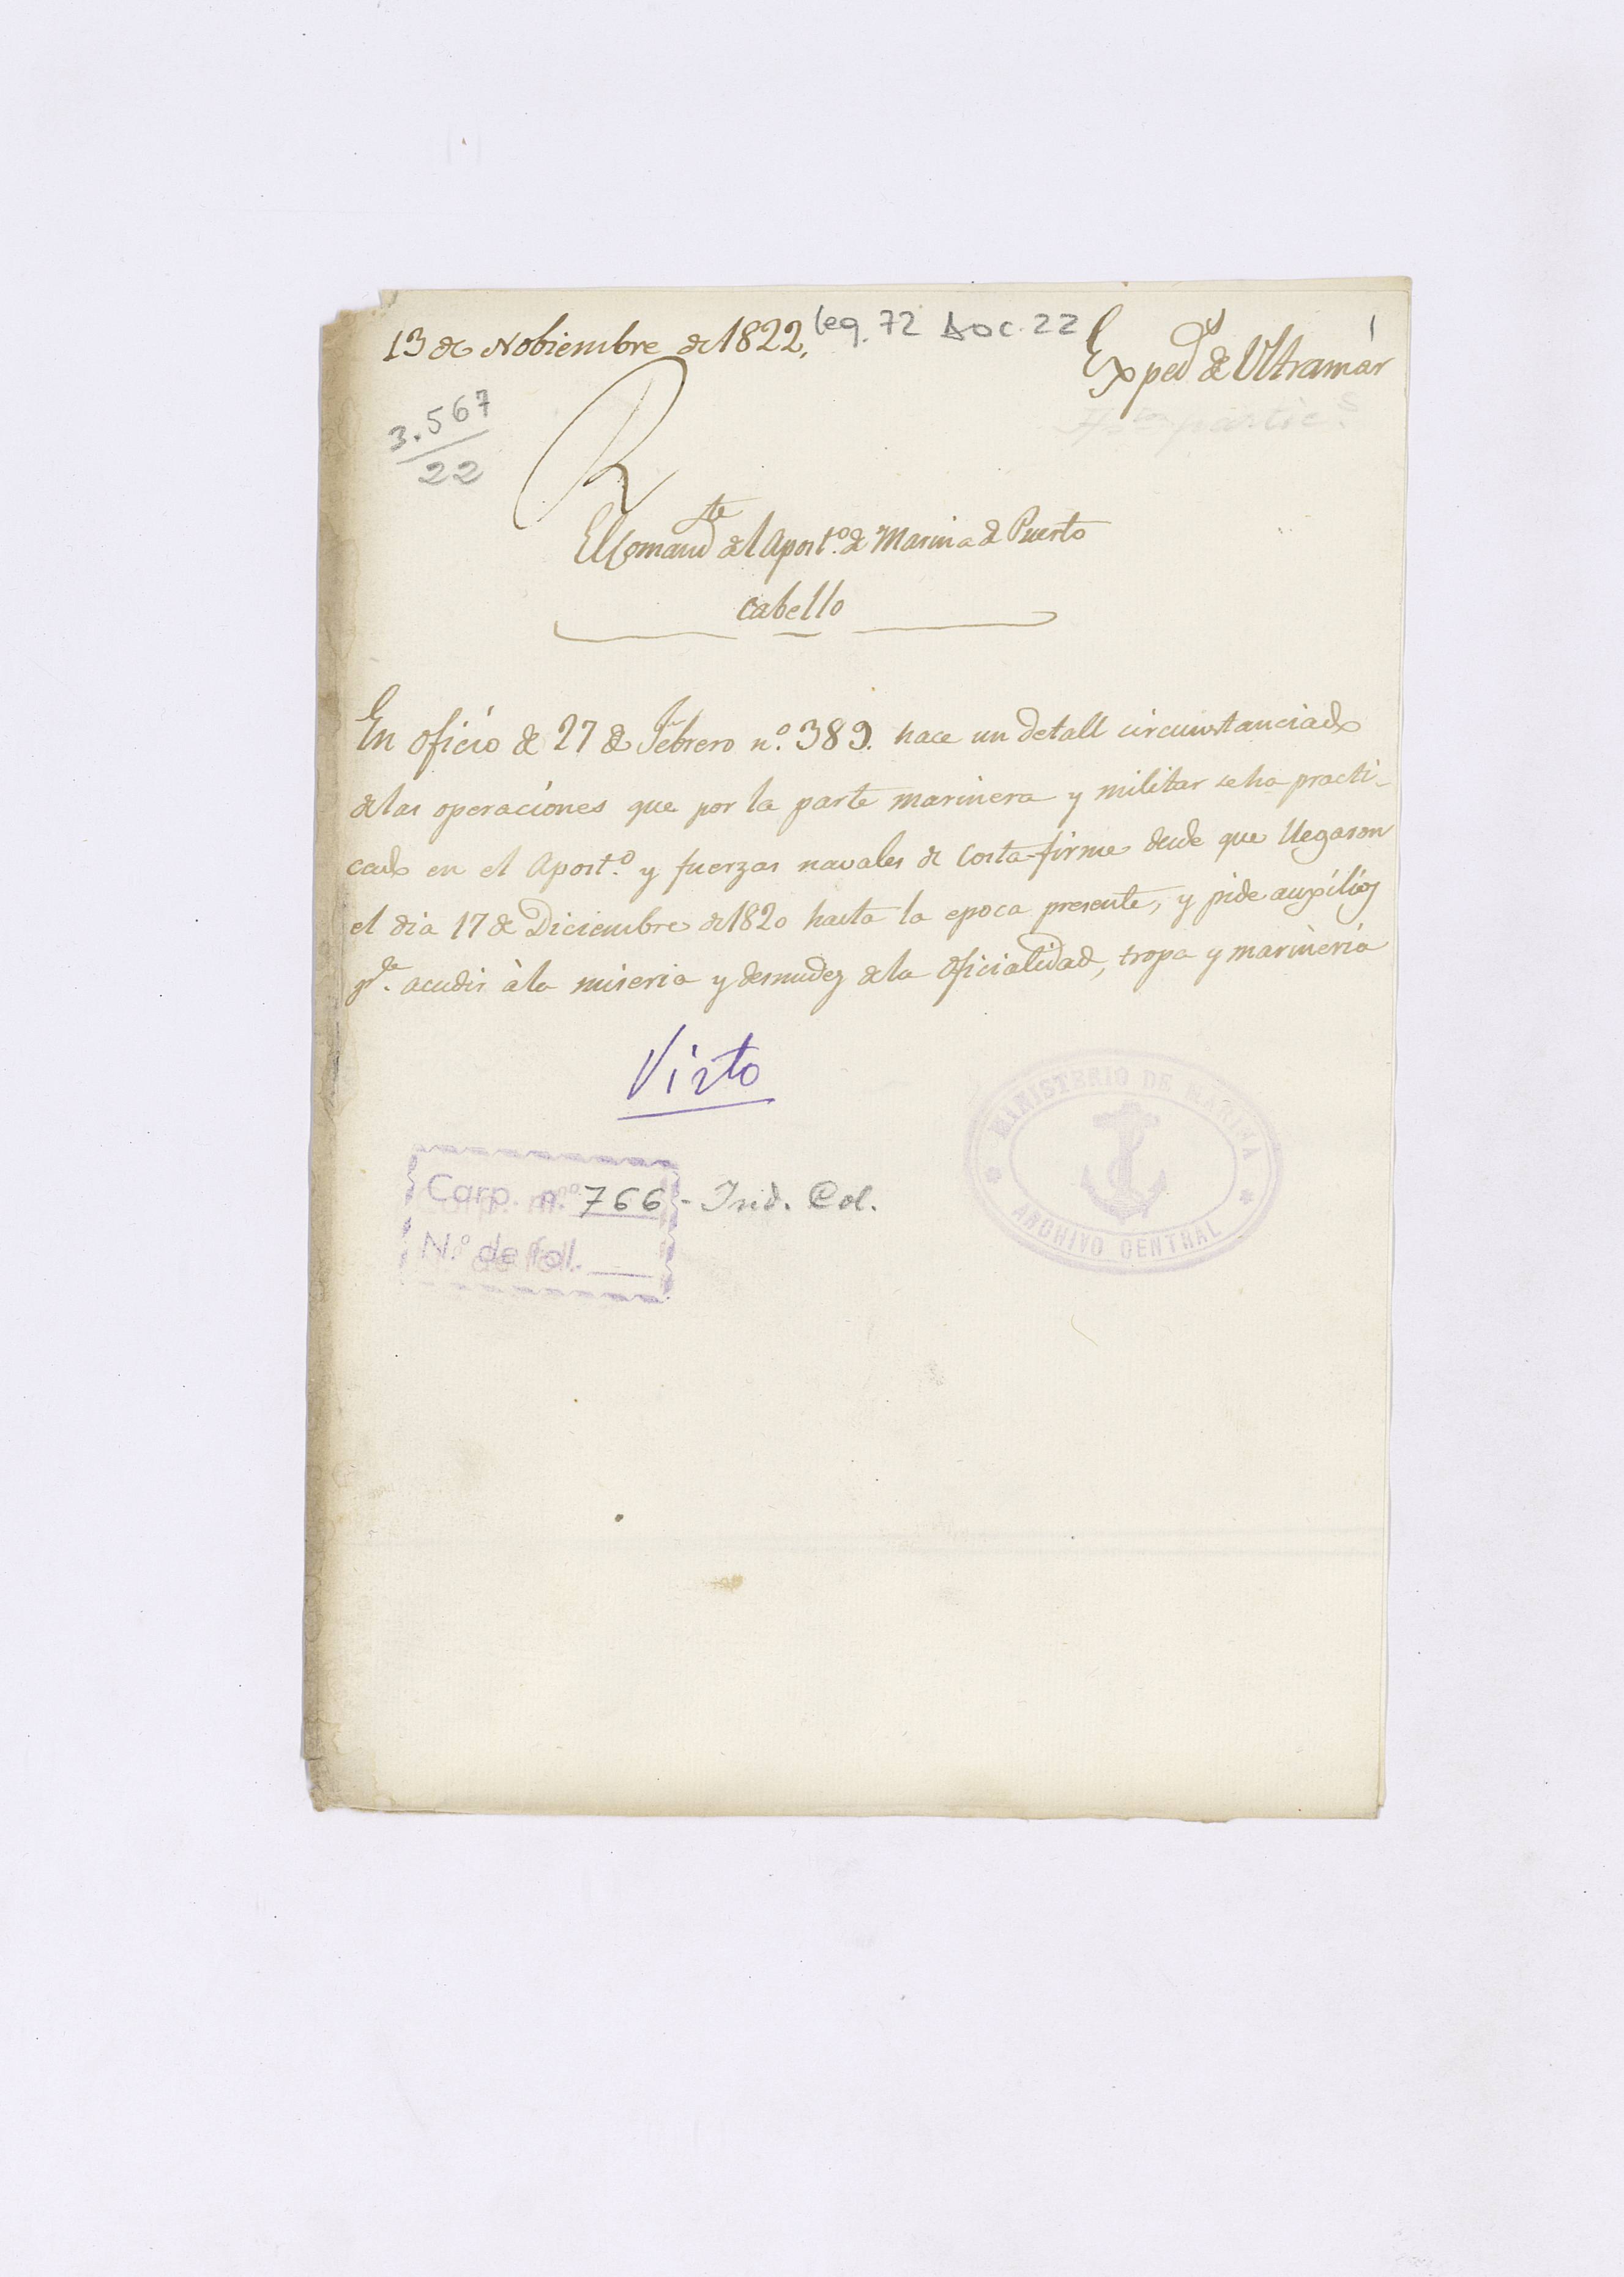 13 de Nobiembre de 1822,
leg. 72 Doc. 22
Exped.s de Ultramar
1
3.567
22
R
El Comand.te del Apost.o de Marina de Puerto
cabello
En oficio de 27 de Febrero n.o 389. hace un detall circunstanciado
de las operaciones que por la parte marinera y militar se ha practi-
cado en el Apost.o y fuerzas navales de Costa-firme desde que llegaron
el dia 17 de Diciembre de 1820 hasta la epoca presente, y pide auxilios
p.a acudir à la miseria y desnudez de la Oficialidad, tropa y marineria
Visto
MINISTERIO DE MARINA
ARCHIVO CENTRAL
Carp. n.º 766 - Ind. Col.
N.º de fol.